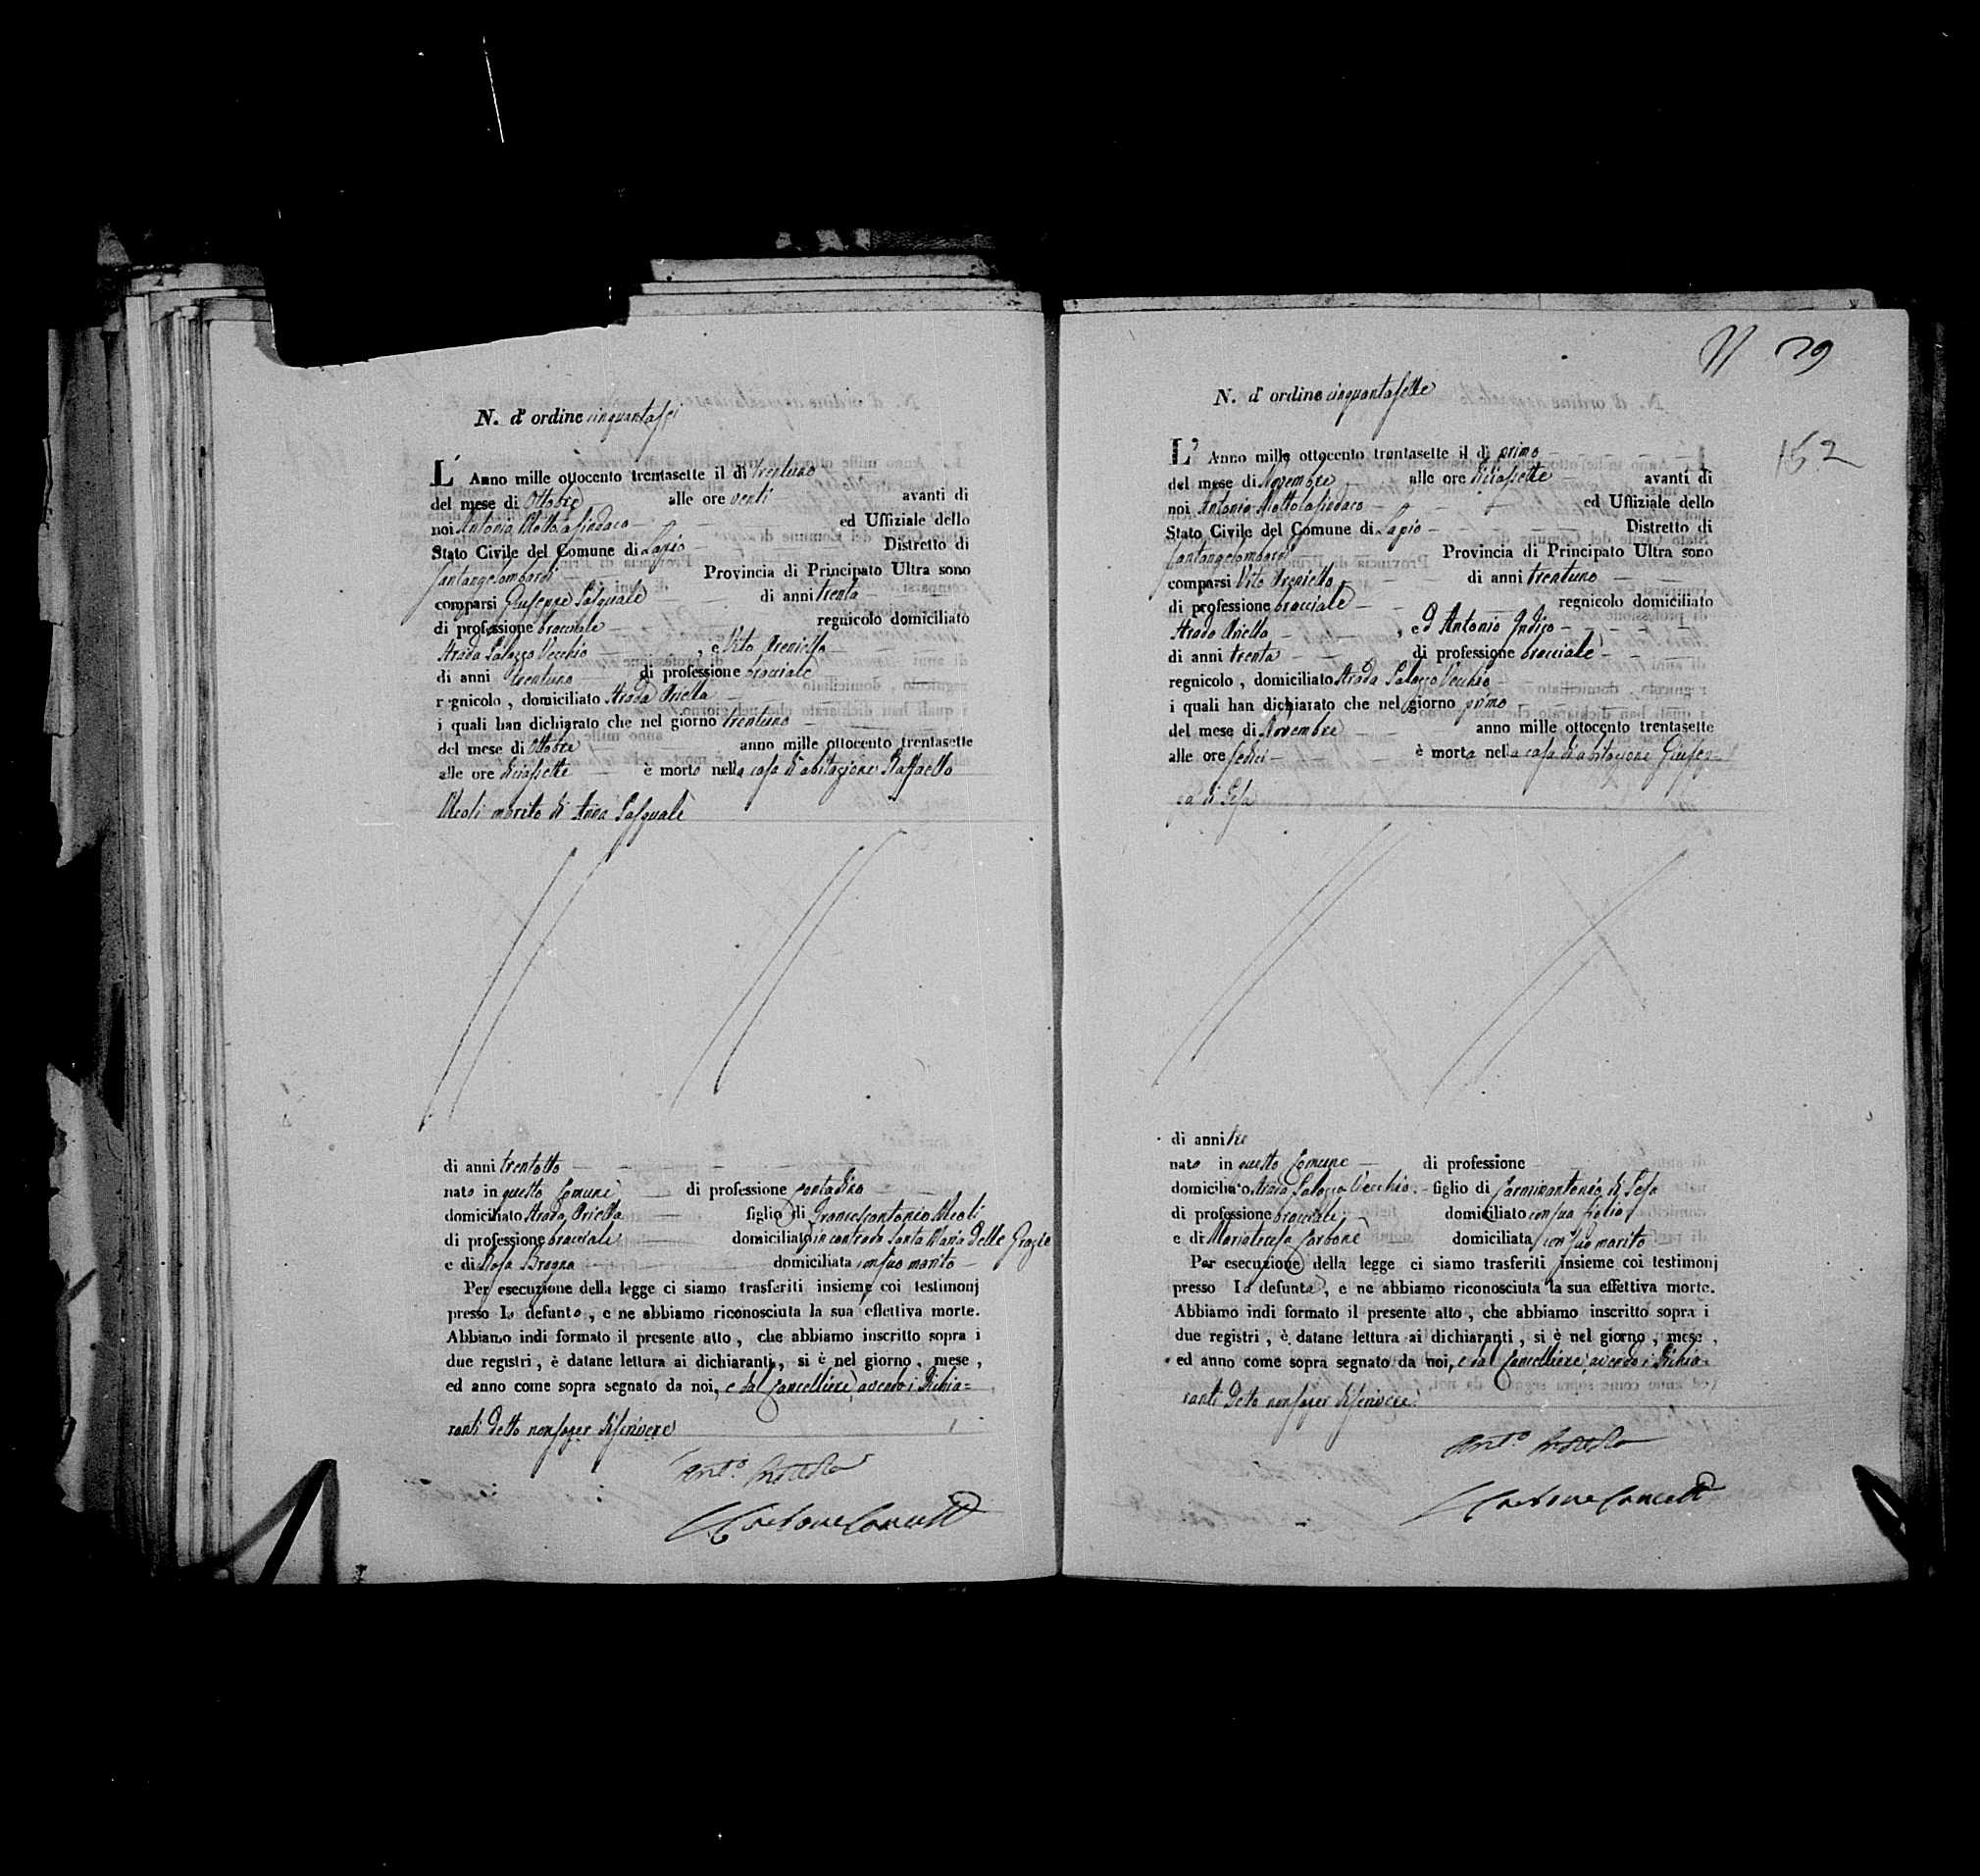 N. d'ordine cinquantasei
L' Anno mille ottocento trentasette il dì trentuno
del mese di Ottobre alle ore venti avanti di
noi Antonio Mottola Sindaco ed Uffiziale dello
Stato Civile del Comune di Lapio Distretto di
Santangelombardi Provincia di Principato Ultra sono
comparsi Giuseppe Pasquale di anni trenta
di professione bracciale regnicolo domiciliato
Strada Palazzo Vecchio , e Vito
di anni trentuno di professione bracciale
regnicolo , domiciliato Strada Oriella
i quali han dichiarato che nel giorno trentuno
del mese di Ottobre anno mille ottocento trentasette
alle ore diciassette è morto nella casa d'abitazione Raffaello
Meoli marito di Anna Pasquale
di anni trentotto
nato in questo Comune di professione contadino
domiciliato Strada Oriella figlio di Francescantonio Meoli
di professione bracciale domiciliato in contrada Santa Maria delle Grazie
e di Rosa domiciliata con suo marito
Per esecuzione della legge ci siamo trasferiti insieme coi testimonj
presso lo defunto , e ne abbiamo riconosciuta la sua effettiva morte.
Abbiamo indi formato il presente atto , che abbiamo inscritto sopra i
due registri , è datane lettura ai dichiaranti , si è nel giorno , mese ,
ed anno come sopra segnato da noi, e dal Cancelliere avendo i Dichia=
ranti detto non saper discrivere
Ant.o Mottola
Gaetano
N 79
152
N. d'ordine cinquantasette
L' Anno mille ottocento trentasette il dì primo
del mese di Novembre alle ore diciassette avanti di
noi Antonio Mottola Sindaco ed Uffiziale dello
Stato Civile del Comune di Lapio Distretto di
Santangelombardi Provincia di Principato Ultra sono
comparsi Vito di anni trentuno
di professione bracciale regnicolo domiciliato
Strada Oriella , ed Antonio
di anni trenta di professione bracciale
regnicolo , domiciliato Strada Palazzo Vecchio
i quali han dichiarato che nel giorno primo
del mese di Novembre anno mille ottocento trentasette
alle ore sedici è morta nella casa d'abitazione Giusep-
pa di Gesa
di anni tre
nato in questo Comune di professione
domiciliato Strada Palazzo Vecchio figlio di Carminantonio di Gesa
di professione bracciale domiciliato con sua figlia
e di Mariateresa Carbone domiciliata con suo marito
Per esecuzione della legge ci siamo trasferiti insieme coi testimonj
presso la defunta , e ne abbiamo riconosciuta la sua effettiva morte.
Abbiamo indi formato il presente atto , che abbiamo inscritto sopra i
due registri , è datane lettura ai dichiaranti , si è nel giorno , mese ,
ed anno come sopra segnato da noi, e dal Cancelliere avendo i Dichia=
ranti detto non saper discrivere
Ant.o Mottola
Gaetano